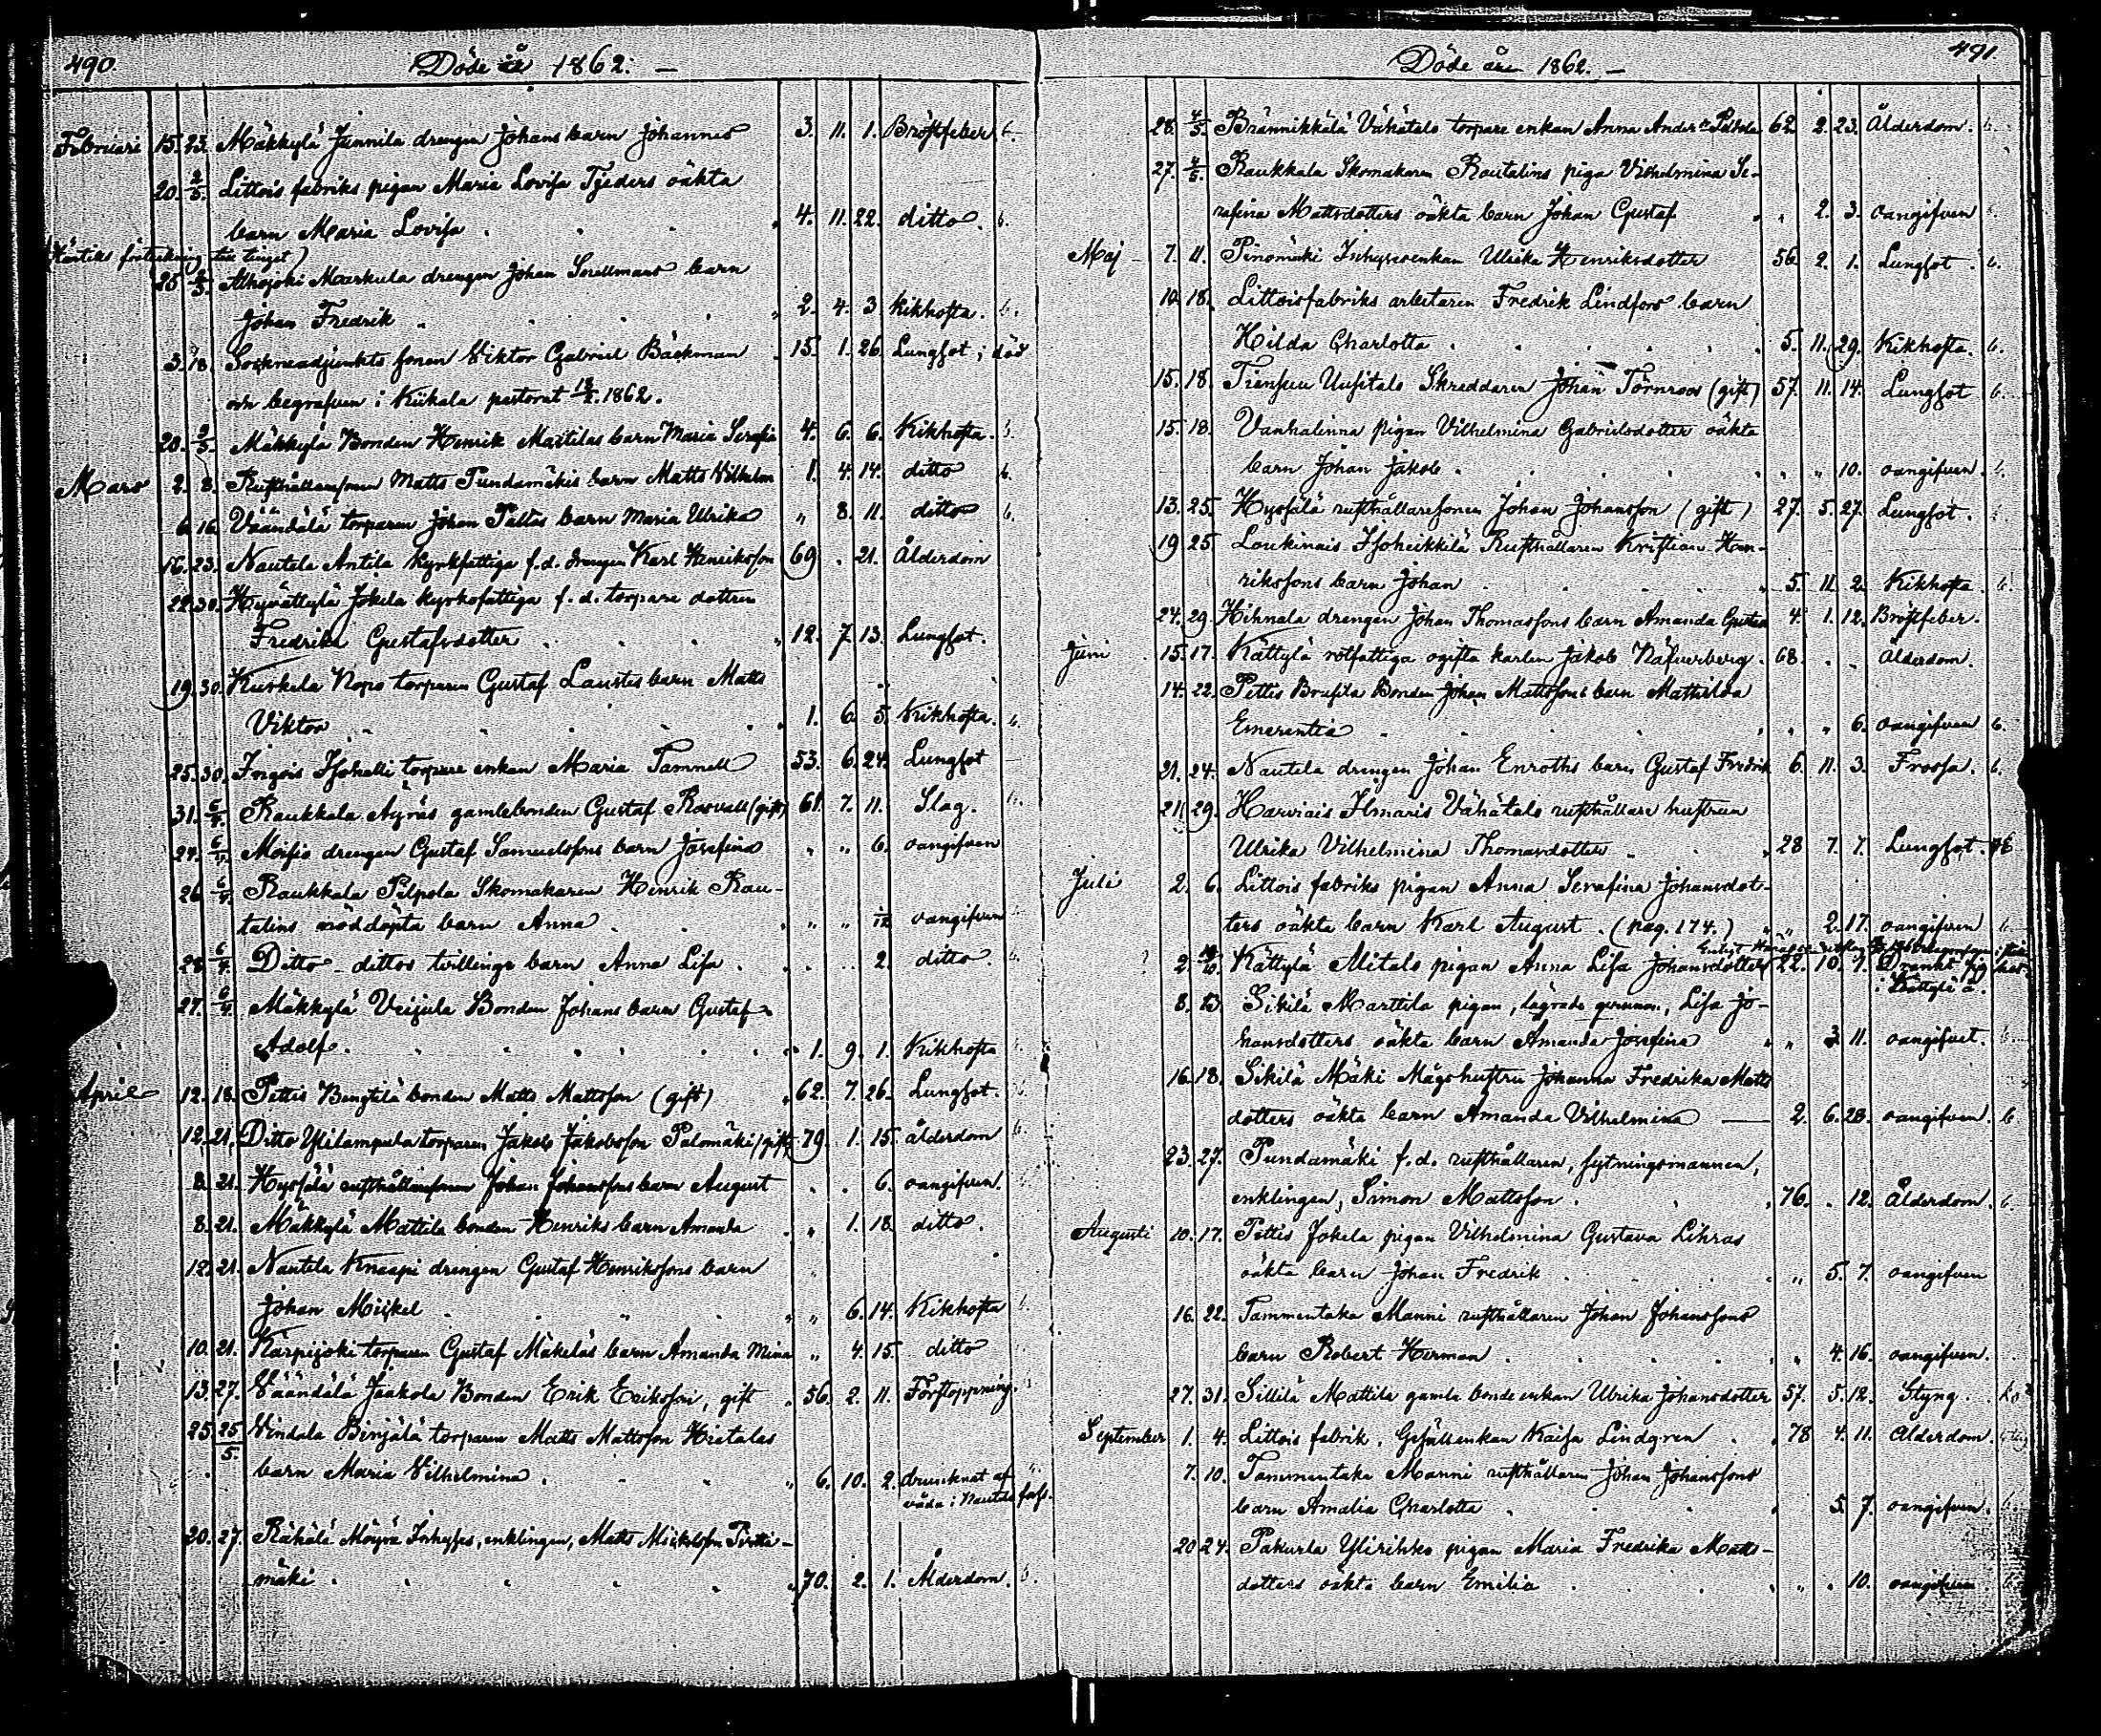 490.
Döde år 1862. —
Februari 15. 23. Mäkkylä Junnila drengen Johans barn Johannes 3. 11. 1. Bröstfeber. b.
20. 2/3. Littois fabriks pigan Maria Lovisa Tjeders oäkta
barn Maria Lovisa . 4. 11. 22. ditto. b.
till tinget)
25 2/3. Alhojoki Markula drengen Johan Snellmans barn
Johan Fredrik . 2. 4. 3 kikhosta. b.
3. 18. Socknenadjunkts sonen Viktor Gabriel Bäckman 15. 1. 26. Lungsot; död
och begrafven i Kiikala pastorat 18/2. 1862.
20. 2/3. Mäkkylä Bonden Henrik Mattilas barn Maria Serafia 4. 6. 6. Kikhosta. b.
Mars 2. 8. Rusthållaresonen Matts Pundamäkis barn Matts Vilhelm 1. 4. 14. ditto b.
6. 16. Väändälä torparen Johan Paltas barn Maria Ulrika „ 8. 11. ditto b.
16. 23. Nautela Antila kyrkfattiga f.d. drengen Karl Henriksson 69 . 21. Ålderdom
22. 30. Hyvättylä Jokela kyrkofattiga f.d. torpare dottren
Fredrika Gustafsdotter . 12. 7. 13. Lungsot.
19. 30. Kurkela Nopo torparen Gustaf Laustes barn Matts
Viktor . 1. 6. 5. Kikhosta. b.
25. 30. Ingois Isohelli torpare enkan Maria Tamnell 53. 6. 24. Lungsot
31. 6/4. Raukkala Äyräs gamlebonden Gustaf Rosvall (gift) 61. 7. 11. Slag. b.
24. 6/4. Moisio drengen Gustaf Samuelssons barn Josefina „ „ 6. oangifven
26. 6/4. Raukkala Pilpola Skomakaren Henrik Rau-
talins nöddöpta barn Anna . „ „ 1/12 oangifven
28. 6/4. Ditto - dittos tvillinge barn Anna Lisa . 2. ditto.
27. 6/4. Mäkkylä Veijula Bonden Johans barn Gustaf
Adolf. 1. 9. 1. Kikhosta
April 12. 18. Pettis Bengtilä bonden Matts Mattsson (gift) 62. 7. 26. Lungsot.
12. 21. Ditto Ylilampula torparen Jakob Jakobsson Palomäki (gift) 79. 1. 15. ålderdom
8. 21. Hyssälä rusthållaresonen Johan Johanssons barn August . . 6. oangifven.
8. 21. Mäkkylä Mattila bonden Henriks barn Amanda . „ 1. 18. ditto.
12. 21. Nautela Knaapi drengen Gustaf Henrikssons barn
Johan Mickel . „ „ 6. 14. Kikhosta
10. 21. Karpijoki torparen Gustaf Mäkeläs barn Amanda Mina „ 4. 15. ditto
13. 27. Väändälä Jaakola Bonden Erik Eriksson, gift . 56. 2. 11. Förstoppning.
25 25/5. Vindala Benjälä torparen Matts Mattsson Hietalas
barn Maria Vilhelmina . 6. 10. 2. drunknat af
våda i Nautela fors.
20. 27. Rähälä Inhyses, enklingen, Matts Mickelsson Pirtti-
mäki . 70. 2. 1. Ålderdom. b.
491.
Döde år 1862. —
28. 4/5. Brännikkälä Vähätalo torpare enkan Anna Anders dr 62. 2. 23. Ålderdom. b.
27. 4/5. Raukkala Skomakaren Rautalins piga Vilhelmina Se-
rafina Mattsdotters oäkta barn Johan Gustaf . „ 2. 3. oangifven
Maj 7. 11. Pinomäki Inhysesenkan Ulrika Henriksdotter 56. 2. 1. Lungsot. b.
10. 18. Littoisfabriks arbetaren Fredrik Lindfors barn
Hilda Charlotta . 5. 11. 29. Kikhosta. b.
15. 18. Uusitalo Skreddaren Johan Törnroos (gift) 57. 11. 14. Lungsot
15. 18. Vanhalinna pigan Vilhelmina Gabrielsdotter oäkta
barn Johan Jakob . „ „ 10. oangifven.
13. 25. Hyssälä rusthållaresonen Johan Johansson (gift) 27. 5. 27. Lungsot.
19 25 Loukinais Isoheikkilä Rusthållaren Kristian Hen-
rikssons barn Johan . 5. 11. 2. Kikhosta b.
24. 29. Hihnala drengen Johan Thomassons barn Amanda 4. 1. 12. Bröstfeber.
Juni 15. 17. Kättylä rotfattiga ogifta karlen Jakob Näfverberg. 68. . . Ålderdom.
14. 22. Pettis Brusila Bonden Johan Mattssons barn Mathilda
Emerentia . „ 6. oangifven b.
21. 24. Nautela drengen Johan Enroths barn Gustaf Fredrik 6. 11. 3. Frossa. b.
21. 29. Harvais Ilmaris Vähätalo rusthållare hustrun
Ulrika Vilhelmina Thomasdotter . 28 7. 7. Lungsot.
Juli 2. 6. Littois fabriks pigan Anna Serafina Johansdot-
ters oäkta barn Karl August. (pag. 174.) „ 2. 17. oangifven
2. Kättylä Alitalo pigan Anna Lisa Johansdotter 22. 10. 7. Dränkt sig
i Kättylä å.
8. 13. Sikilä Marttila pigan, Lisa Jo-
hansdotters oäkta barn Amanda Josefina „ „ 3. 11. oangifvet.
16. 18. Sikilä Mäki Mågshustru Johanna Fredrika Matts
dotters oäkta barn Amanda Vilhelmina — 2. 6. 28. oangifven. b.
23. 27. Pundamäki f.d. rusthållaren, sytningsmannen,
enklingen, Simon Mattsson . 76. . 12. Ålderdom.
Augusti 10. 17. Pettis Jokela pigan Vilhelmina Gustava Lihras
oäkta barn Johan Fredrik . „ 5. 7. oangifven
16. 22. Tammentaka Manni rusthållaren Johan Johanssons
barn Robert Herman . 4. 16. oangifven.
27. 31. Sillilä Mattila gamla bonde enkan Ulrika Johansdotter 57. 5. 12. Styng.
September 1. 4. Littois fabrik. Gesällsenkan Kaisa Lindgren . 78 4. 11. Ålderdom.
7. 10. Tammentaka Manni rusthållaren Johan Johanssons
barn Amalia Charlotta . 5. 7. oangifven. b.
20 24. Pakurla Ylirihko pigan Maria Fredrika Matts-
dotters oäkta barn Emilia . „ . 10. oangifven